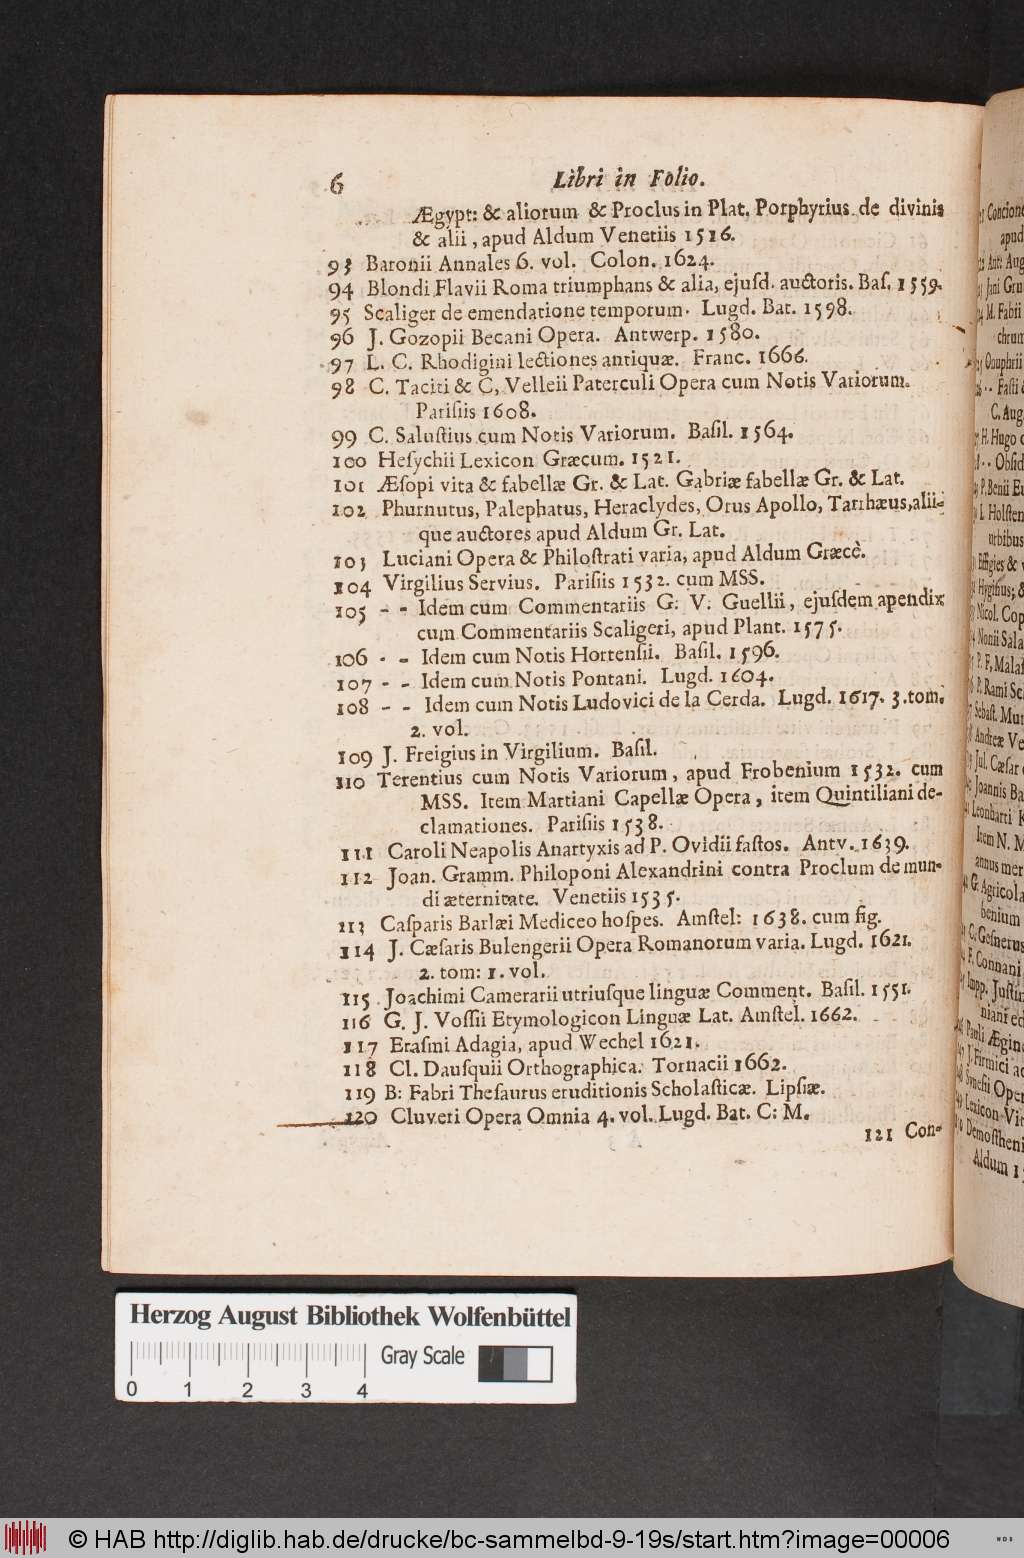 6 Libri in Folio.
Ægypt: & aliorum & Proclus in Plat. Porphyrius de divinis
& alii, apud Aldum Venetiis 1516.
93 Baronii Annales 6. vol. Colon. 1624.
94 Blondi Flavii Roma triumphans & alia, ejusd. auctoris. Bas. 1559.
95 Scaliger de emendatione temporum. Lugd. Bat. 1598.
96 J. Gozopii Becani Opera. Antwerp. 1580.
97 L. C. Rhodigini lectiones antiquæ. Franc. 1666.
98 C. Taciti & C, Velleii Paterculi Opera cum Notis Variorum.
Parisiis 1608.
99 C. Salustius cum Notis Variorum. Basil. 1564.
100 Hesychii Lexicon Græcum. 1521.
101 Æsopi vita & fabellæ Gr. & Lat. Gabriæ fabellæ Gr. & Lat.
102 Phurnutus, Palephatus, Heraclydes, Orus Apollo, Tarrhæus, alii-
que auctores apud Aldum Gr. Lat.
103 Luciani Opera & Philostrati varia, apud Aldum Græcè.
104 Virgilius Servius. Parisiis 1532. cum MSS.
105 - - Idem cum Commentariis G: V: Guellii, ejusdem apendix
cum Commentariis Scaligeri, apud Plant. 1575.
106 - - Idem cum Notis Hortensii. Basil. 1596.
107 - - Idem cum Notis Pontani. Lugd. 1604.
108 - - Idem cum Notis Ludovici de la Cerda. Lugd. 1617. 3. tom.
2. vol.
109 J. Freigius in Virgilium. Basil.
110 Terentius cum Notis Variorum, apud Frobenium 1532. cum
MSS. Item Martiani Capellæ Opera, item Quintiliani de-
clamationes. Parisiis 1538.
111 Caroli Neapolis Anartyxis ad P. Ovidii fastos. Antv. 1639.
112 Joan. Gramm. Philoponi Alexandrini contra Proclum de mun-
di æternitate. Venetiis 1535.
113 Casparis Barlæi Mediceo hospes. Amstel: 1638. cum fig.
114 J. Cæsaris Bulengerii Opera Romanorum varia. Lugd. 1621.
2. tom: 1. vol.
115 Joachimi Camerarii utriusque linguæ Comment. Basil. 1551.
116 G. J. Vossii Etymologicon Linguæ Lat. Amstel. 1662.
117 Erasmi Adagia, apud Wechel 1621.
118 Cl. Dausquii Orthographica. Tornacii 1662.
119 B: Fabri Thesaurus eruditionis Scholasticæ. Lipsiæ.
120 Cluveri Opera Omnia 4. vol. Lugd. Bat. C: M.
121 Con-
Concione
apud
Ant: Aug
Jani Gru
M. Fabii
Onuphrii
Fasti
C. Aug
H. Hugo
Obsid
P. Benii Eu
L. Holsten
urbibus
Effigies &
Hyginus; &
Nicol. Cop
Nonii Sala
P. F. Malas
P. Rami Sc
Sebast. Mun
Andreæ Ve
Jul. Cæsar
Joannis Ba
Leonharti
Item N. M
annus mer
G. Agricola
benium
C. Gesnerus
F. Connani
Impp. Justin
niani ed
Pauli Ægine
J. Firmici
Synesii Oper
Lexicon Vi
Demostheni
Aldum 1
Herzog August Bibliothek Wolfenbüttel
0 1 2 3 4
Gray Scale
© HAB http://diglib.hab.de/drucke/bc-sammelbd-9-19s/start.htm?image=00006